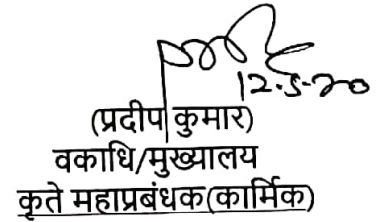 12.5.20
(प्रदीप कुमार)
वकाधि/मुख्यालय
कृते महाप्रबंधक(कार्मिक)